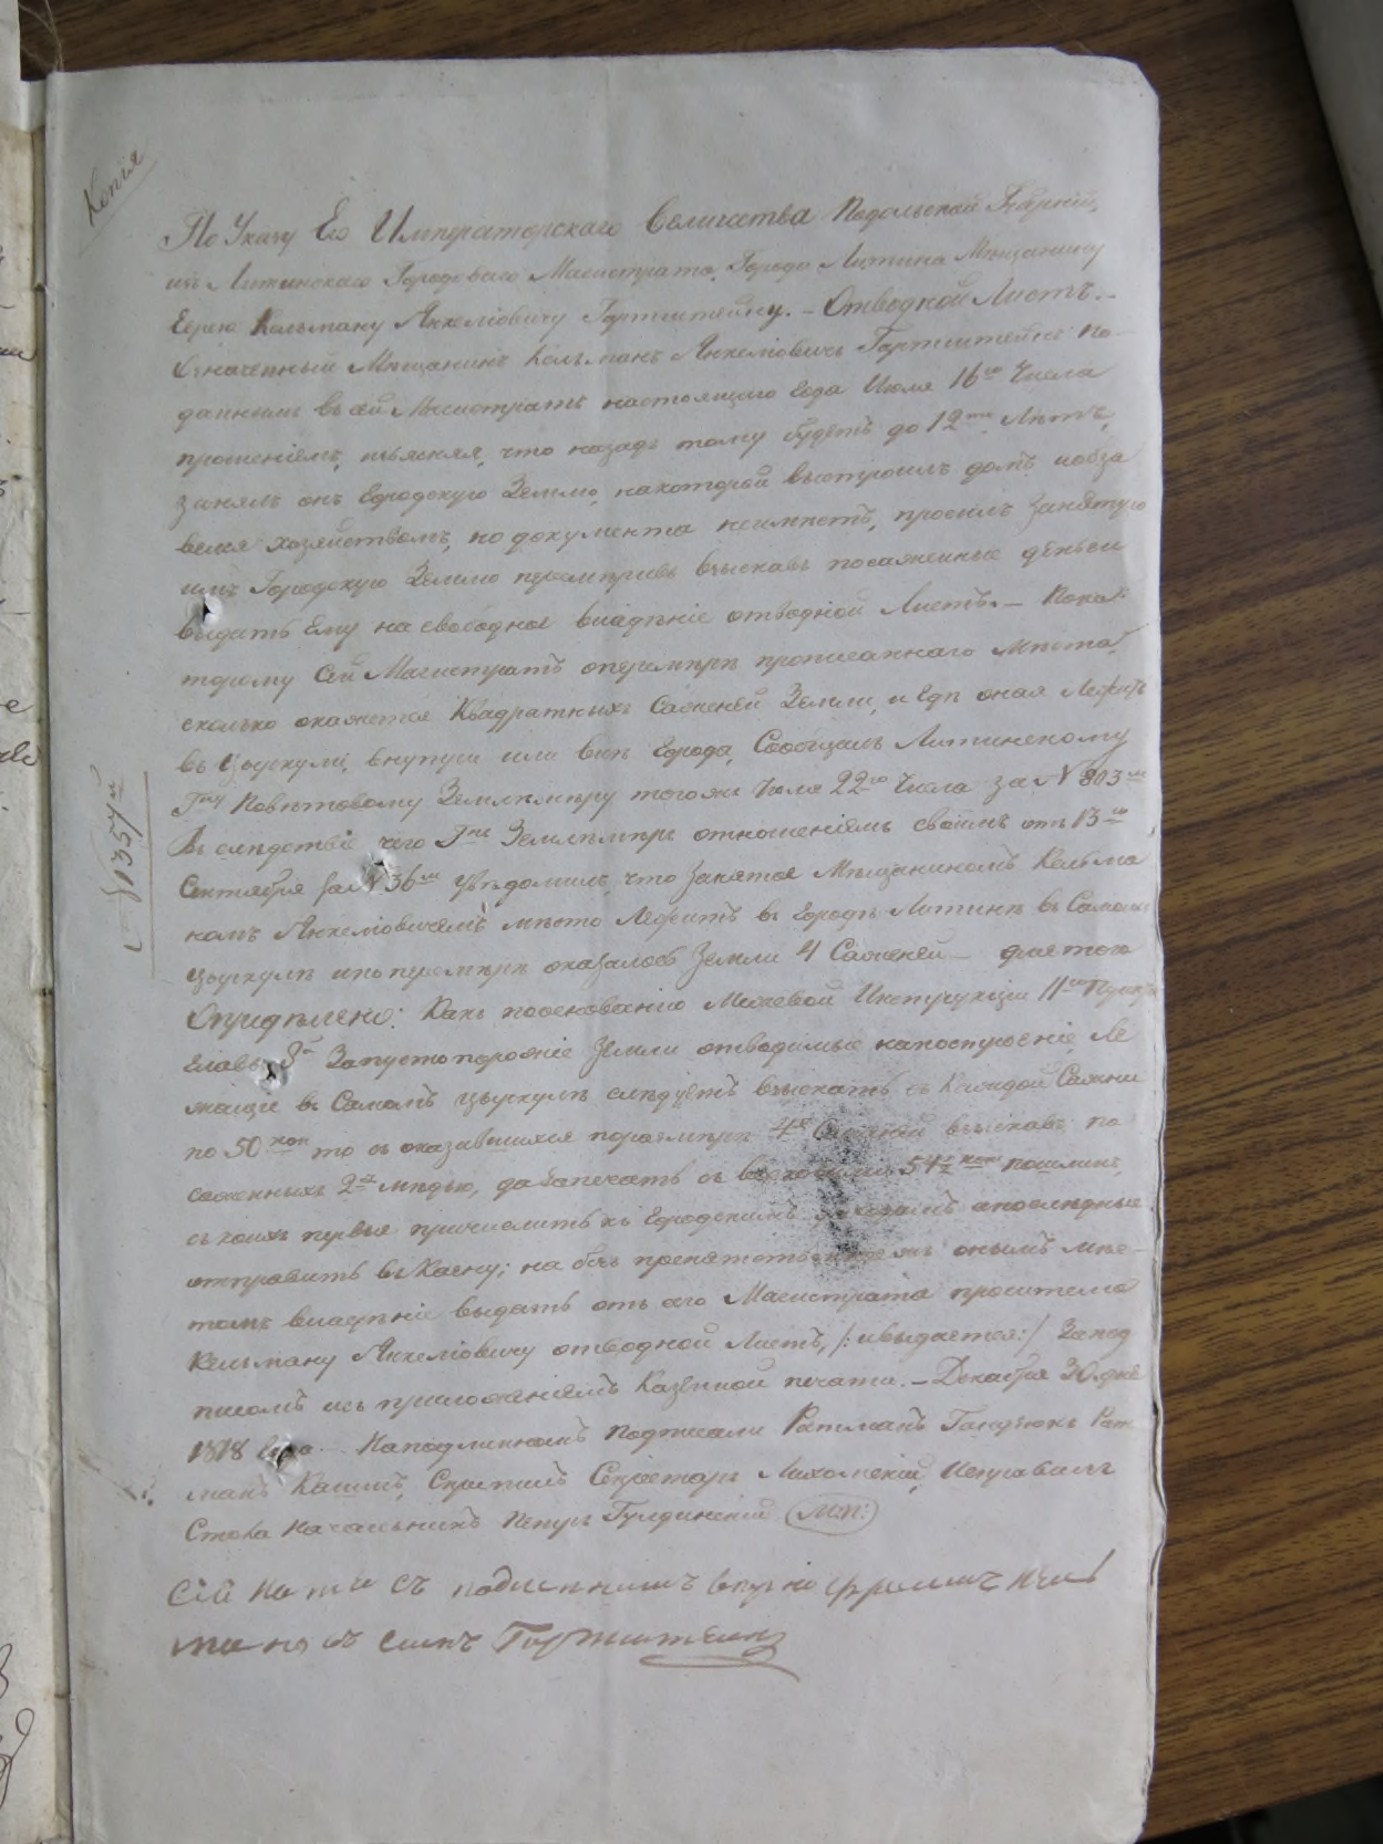 Копія
По Указу Его Императорскаго Величества Подольской Губерніи,
изъ Литинскаго Городоваго Магистрата, Города Литина Мещанину
Еврею Кельману Янкеліовичу Гортштейну. – Отводной Листъ. –
Означенный Мещанинъ Кельманъ Янкеліовичъ Гортштейнъ по-
даннымъ въ сей Магистратъ настоящаго года Июля 16го Числа
прошеніемъ, изъясняя, что назадъ тому будетъ до 12ти Летъ,
занялъ онъ Городскую Землю, на которой выстроилъ домъ и обза
велся хозяйствомъ, но документа не имеетъ, просилъ занятую
имъ Городскую Землю перемеривъ взыскавъ посаженные деньги
выдать Ему на свободное владение отводной Листъ. – Пока
торому Сей Магистратъ о перемере прописаннаго Места,
сколько окажется Квадратныхъ Саженей Земли, и Где оная Лежитъ
въ Цыркуле, внутри или вне Города, Сообщалъ Литинскому
Гну Поветовому Землемеру того же Июля 22го Числа за N 803м
Въ следствіе чего Гнъ Землемеръ отношеніемъ своимъ отъ 13го
Сентября за N 36м уведомилъ, что занятое Мещаниномъ Кельма
номъ Янкеліовичемъ место Лежитъ въ Городе Литине въ Самомъ
цыркуле и по перемере оказалось Земли 4 Саженей –
Определено: Какъ по основанію Межевой Инструкціи 11го Пункта
Главы 8й За пустопорожніе Земли отводимые на построеніе Ле
жащіе въ Самомъ цыркуле следуетъ взыскать съ Каждой Сажни
по 50 коп то съ оказавшихся по размере 4х Саженей взыскавъ по
саженныхъ 2 р медью, да за печать съ 54½ коп пошлинъ,
съ коихъ первые причислить къ Городскимъ доходамъ а последные
отправить въ Казну; на безъ препятственное жъ онымъ мес-
томъ владеніе выдать отъ сего Магистрата просителю
Кельману Янкеліовичу отводной Листъ, /: и выдается :/ За под
писомъ и съ приложеніемъ Казенной печати. – Декабря 30. дня
1818 Года. На подлинномъ Подписали Ратманъ Ганзюкъ Рат
манъ Скрепилъ Секретарь Исправилъ
Стола Начальникъ Петръ Гулдинскій (М:П:)
Сій съ подленнимъ верно
Гортштейн
N 1357м